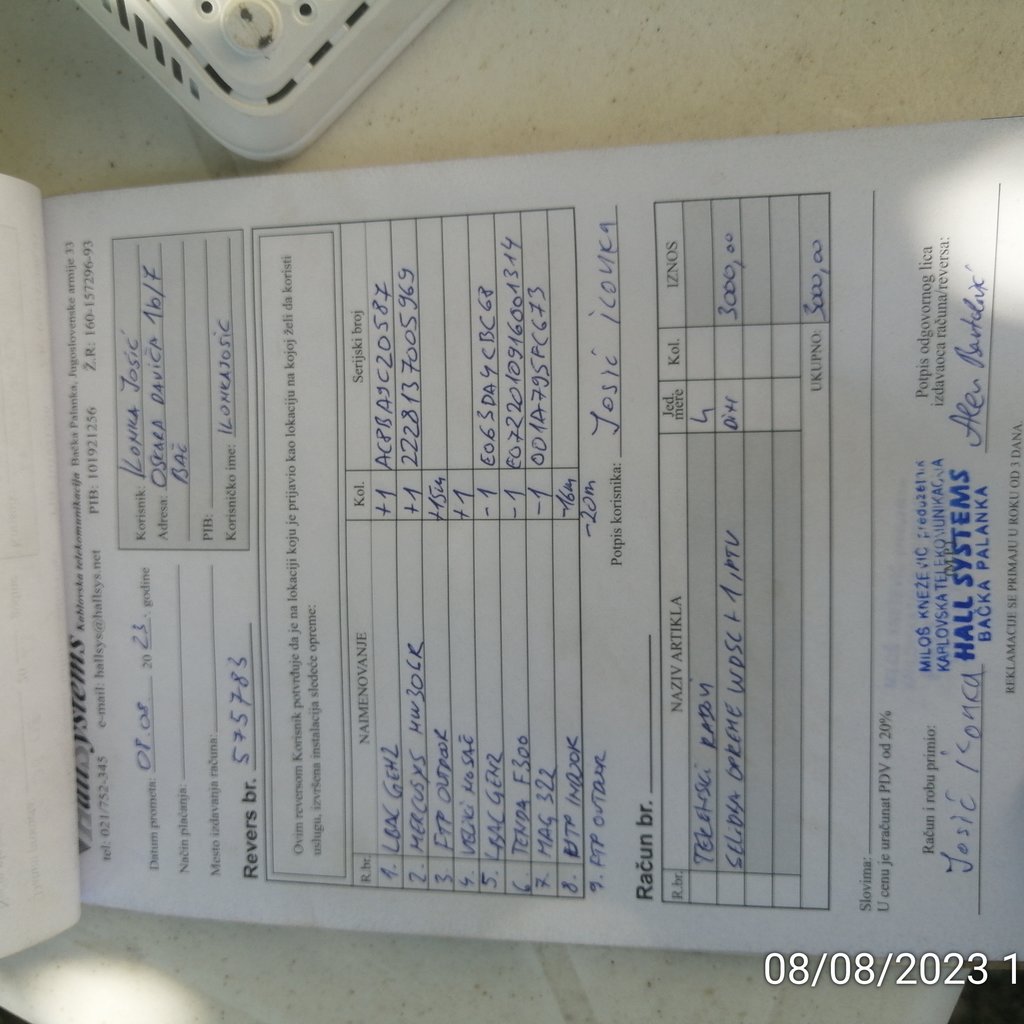 HallSystems Kablovska telekomunikacija Bačka Palanka, Jugoslovenske armije 33
tel: 021/752-345 e-mail: hallsys@hallsys.net PIB: 101921256 Ž.R: 160-157296-93
Datum prometa: 08.08 2023. godine
Način plaćanja:
Mesto izdavanja računa:
Korisnik: ILONKA JOSIĆ
Adresa: OSKARA DAVIČA 1b/7
BAČ
PIB:
Korisničko ime: ILONKAJOSIC
Revers br. 575783
Ovim reversom Korisnik potvrđuje da je na lokaciji koju je prijavio kao lokaciju na kojoj želi da koristi
uslugu, izvršena instalacija sledeće opreme:
R.br. NAIMENOVANJE Kol. Serijski broj
1. LBAC GEN2 +1 AC8BA9C20587
2. MERCUSYS MW30GR +1 2228137005969
3. FTP OUTDOOR +15m
4. VELIKI NOSAČ +1
5. LBAC GEN2 -1 E063DA4CBC68
6. TENDA F300 -1 E0722010916001314
7. MAG 322 -1 001A795FC673
8. FTP INDOOR -16m
9. FTP OUTDOOR -20m
Potpis korisnika: Josić Ilonka
Račun br.
R.br. NAZIV ARTIKLA Jed. mere Kol. IZNOS
TERENSKI RADOVI h
SELIDBA OPREME WDSL + 1 IPTV DIN 3000,00
UKUPNO: 3000,00
Slovima:
U cenu je uračunat PDV od 20%
Račun i robu primio:
Josić Ilonka
MILOŠ KNEŽEVIĆ preduzetnik
KABLOVSKA TELEKOMUNIKACIJA
HALL SYSTEMS
BAČKA PALANKA
Potpis odgovornog lica
izdavaoca računa/reversa:
REKLAMACIJE SE PRIMAJU U ROKU OD 3 DANA.
08/08/2023 1